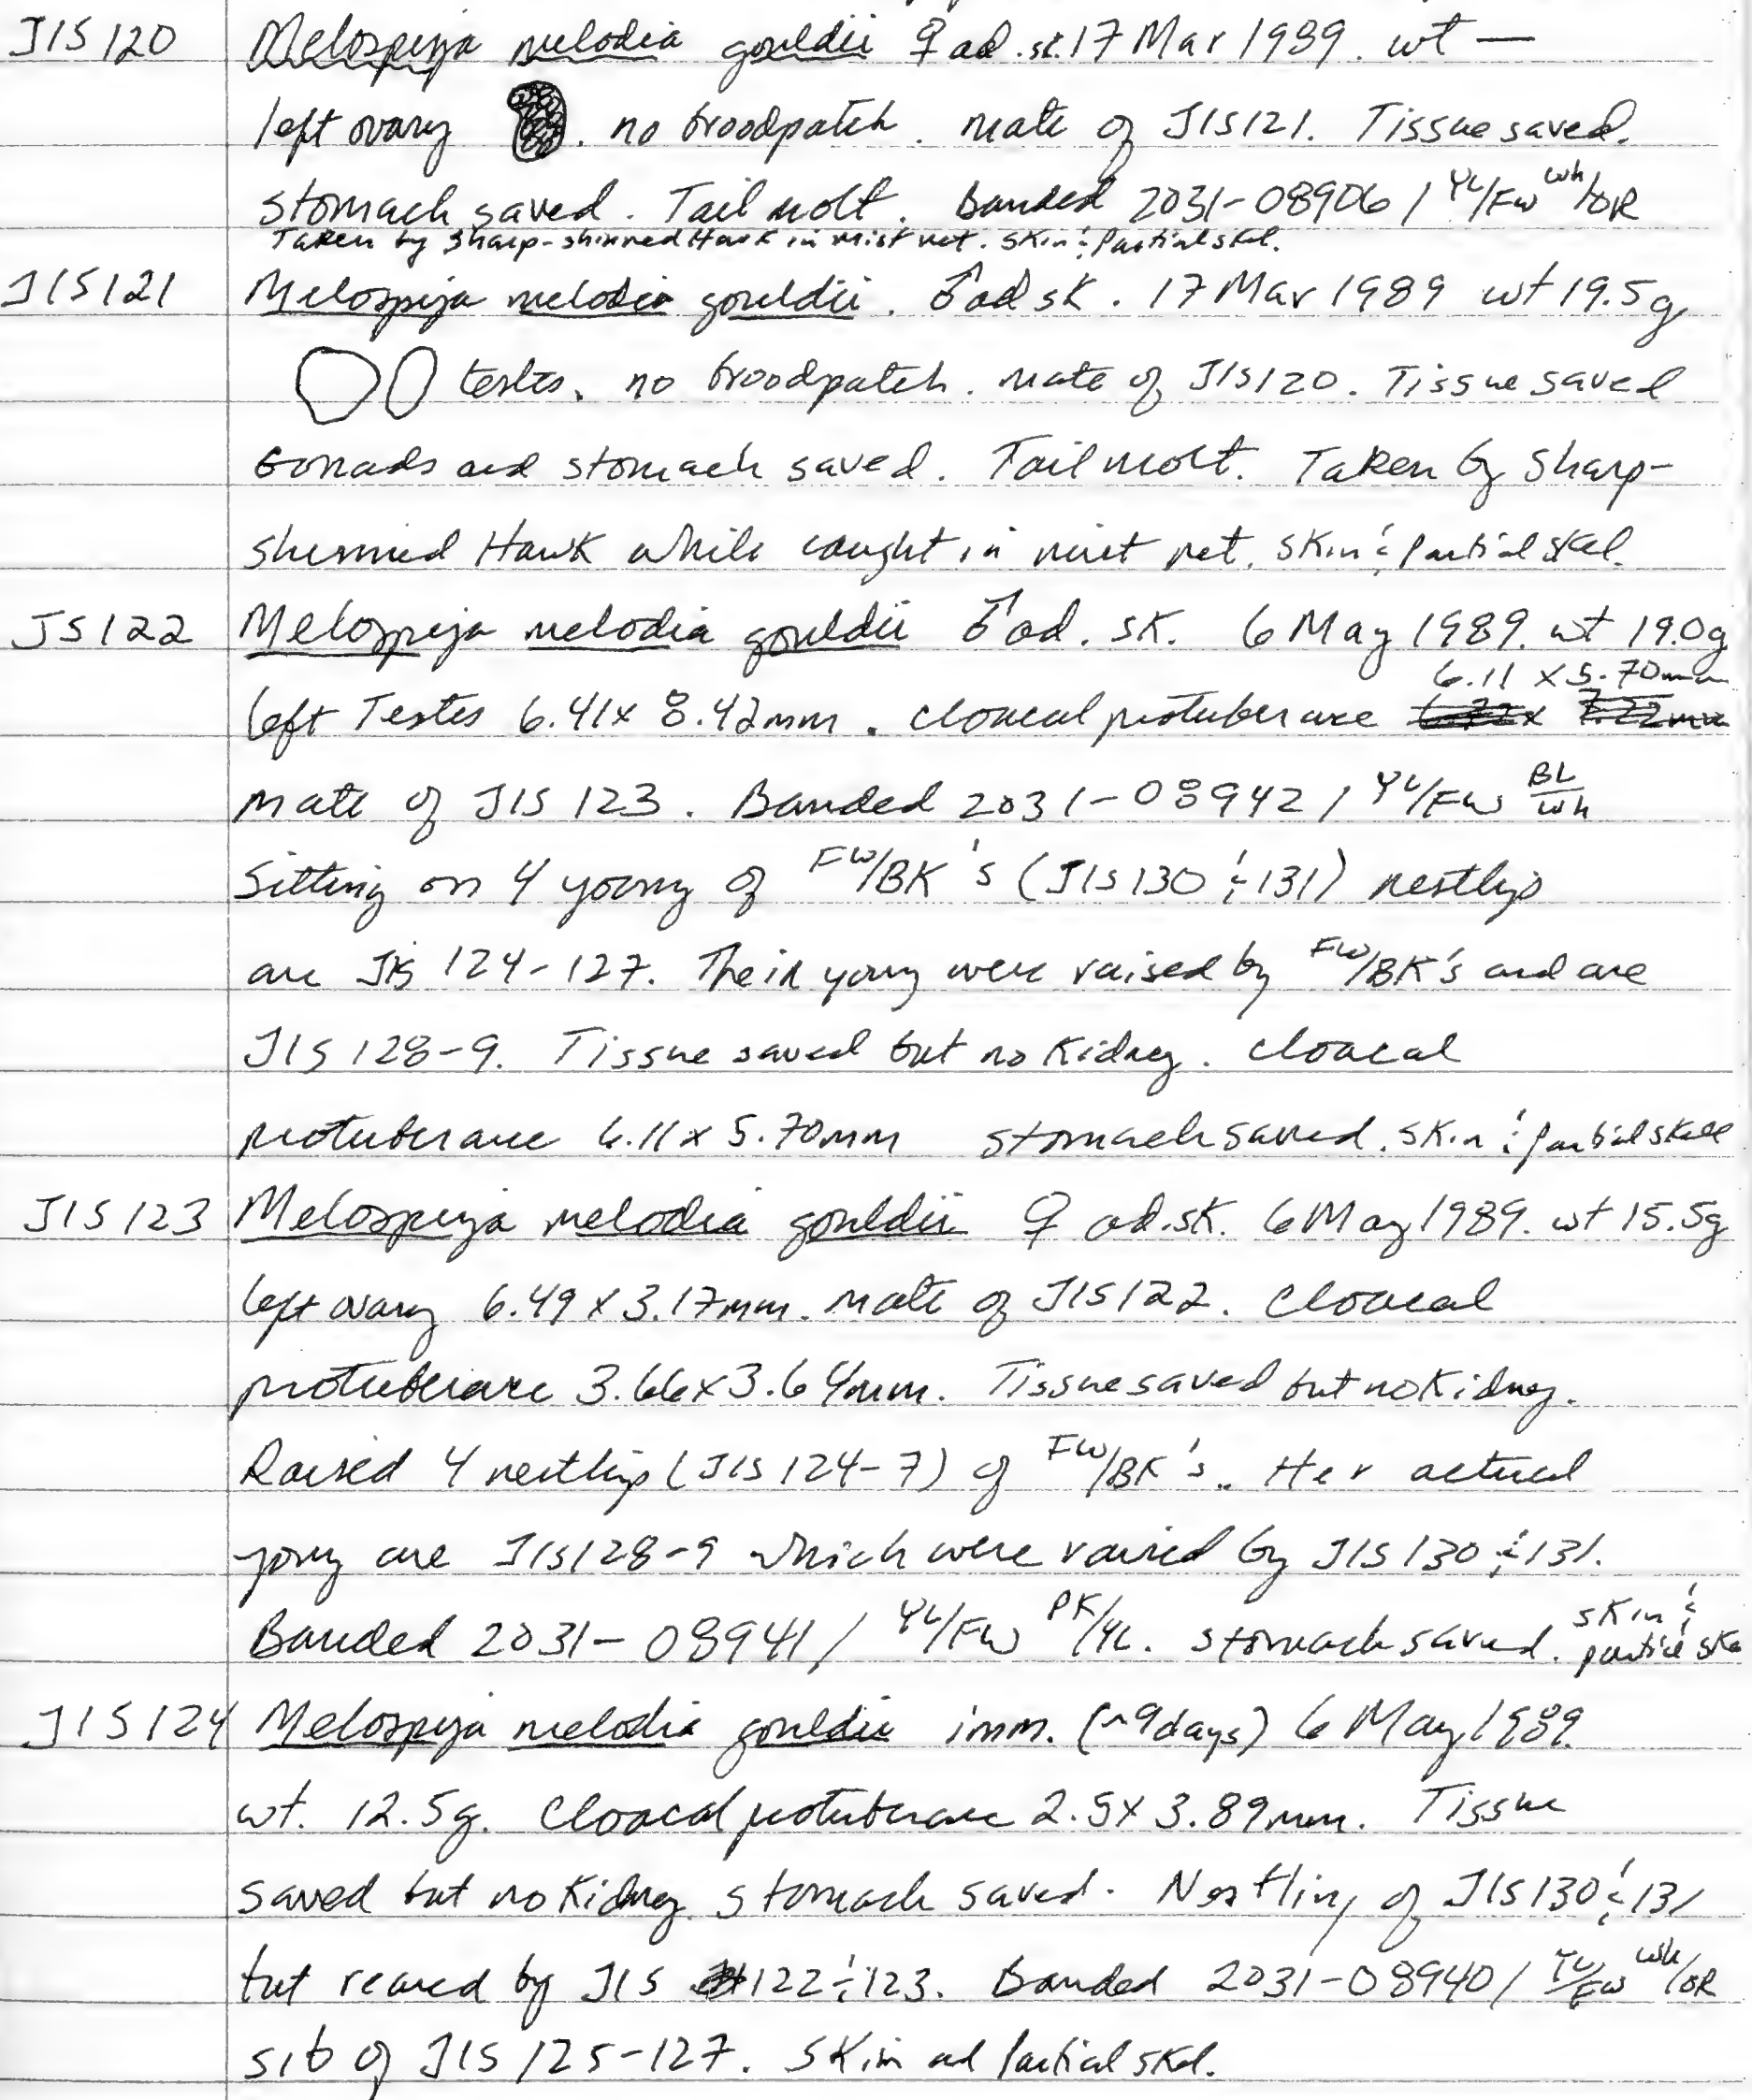 JIS 120 Melospiza melodia gouldii ♀ ad. sk. 17 Mar 1989. wt —
left ovary . no broodpatch. mate of JIS121. Tissue saved.
stomach saved. Tail molt. Banded 2031-08906 / YL/FW Wh/OR
Taken by Sharp-shinned Hawk in mist net. Skin & Partial skel.
JIS121 Melospiza melodia gouldii. ♂ ad sk. 17 Mar 1989 wt 19.5g
testes. no broodpatch. mate of JIS120. Tissue saved
Gonads and stomach saved. Tail molt. Taken by Sharp-
shinned Hawk while caught in mist net. Skin & Partial skel.
JS122 Melospiza melodia gouldii ♂ ad. sk. 6 May 1989. wt 19.0g
6.11 x 5.70mm
left Testes 6.41 x 8.42mm. cloacal protuberance
mate of JIS 123. Banded 2031-08942 / YL/FW BL/Wh
Sitting on 4 young of FW/BK's (JIS130 & 131) nestlings
are JIS 124-127. Their young were raised by FW/BK's and are
JIS 128-9. Tissue saved but no Kidney. cloacal
protuberance 6.11 x 5.70mm stomach saved. Skin & partial skel
JIS 123 Melospiza melodia gouldii ♀ ad. sk. 6 May 1989. wt 15.5g
left ovary 6.49 x 3.17mm. mate of JIS122. Cloacal
protuberance 3.66 x 3.64mm. Tissue saved but no Kidney.
Raised 4 nestlings (JIS 124-7) of FW/BK's. Her actual
young are JIS128-9 which were raised by JIS 130 & 131.
Banded 2031-08941 / YL/FW PK/YL. stomach saved. skin & partial ske
JIS 124 Melospiza melodia gouldii imm. (~9days) 6 May 1989.
wt. 12.5g. Cloacal protuberance 2.5 x 3.89mm. Tissue
saved but no Kidney. stomach saved. Nestling of JIS130 & 131
but reared by JIS 122 & 123. Banded 2031-08940 / YL/FW Wh/OR
sib of JIS 125-127. Skin and Partial skel.